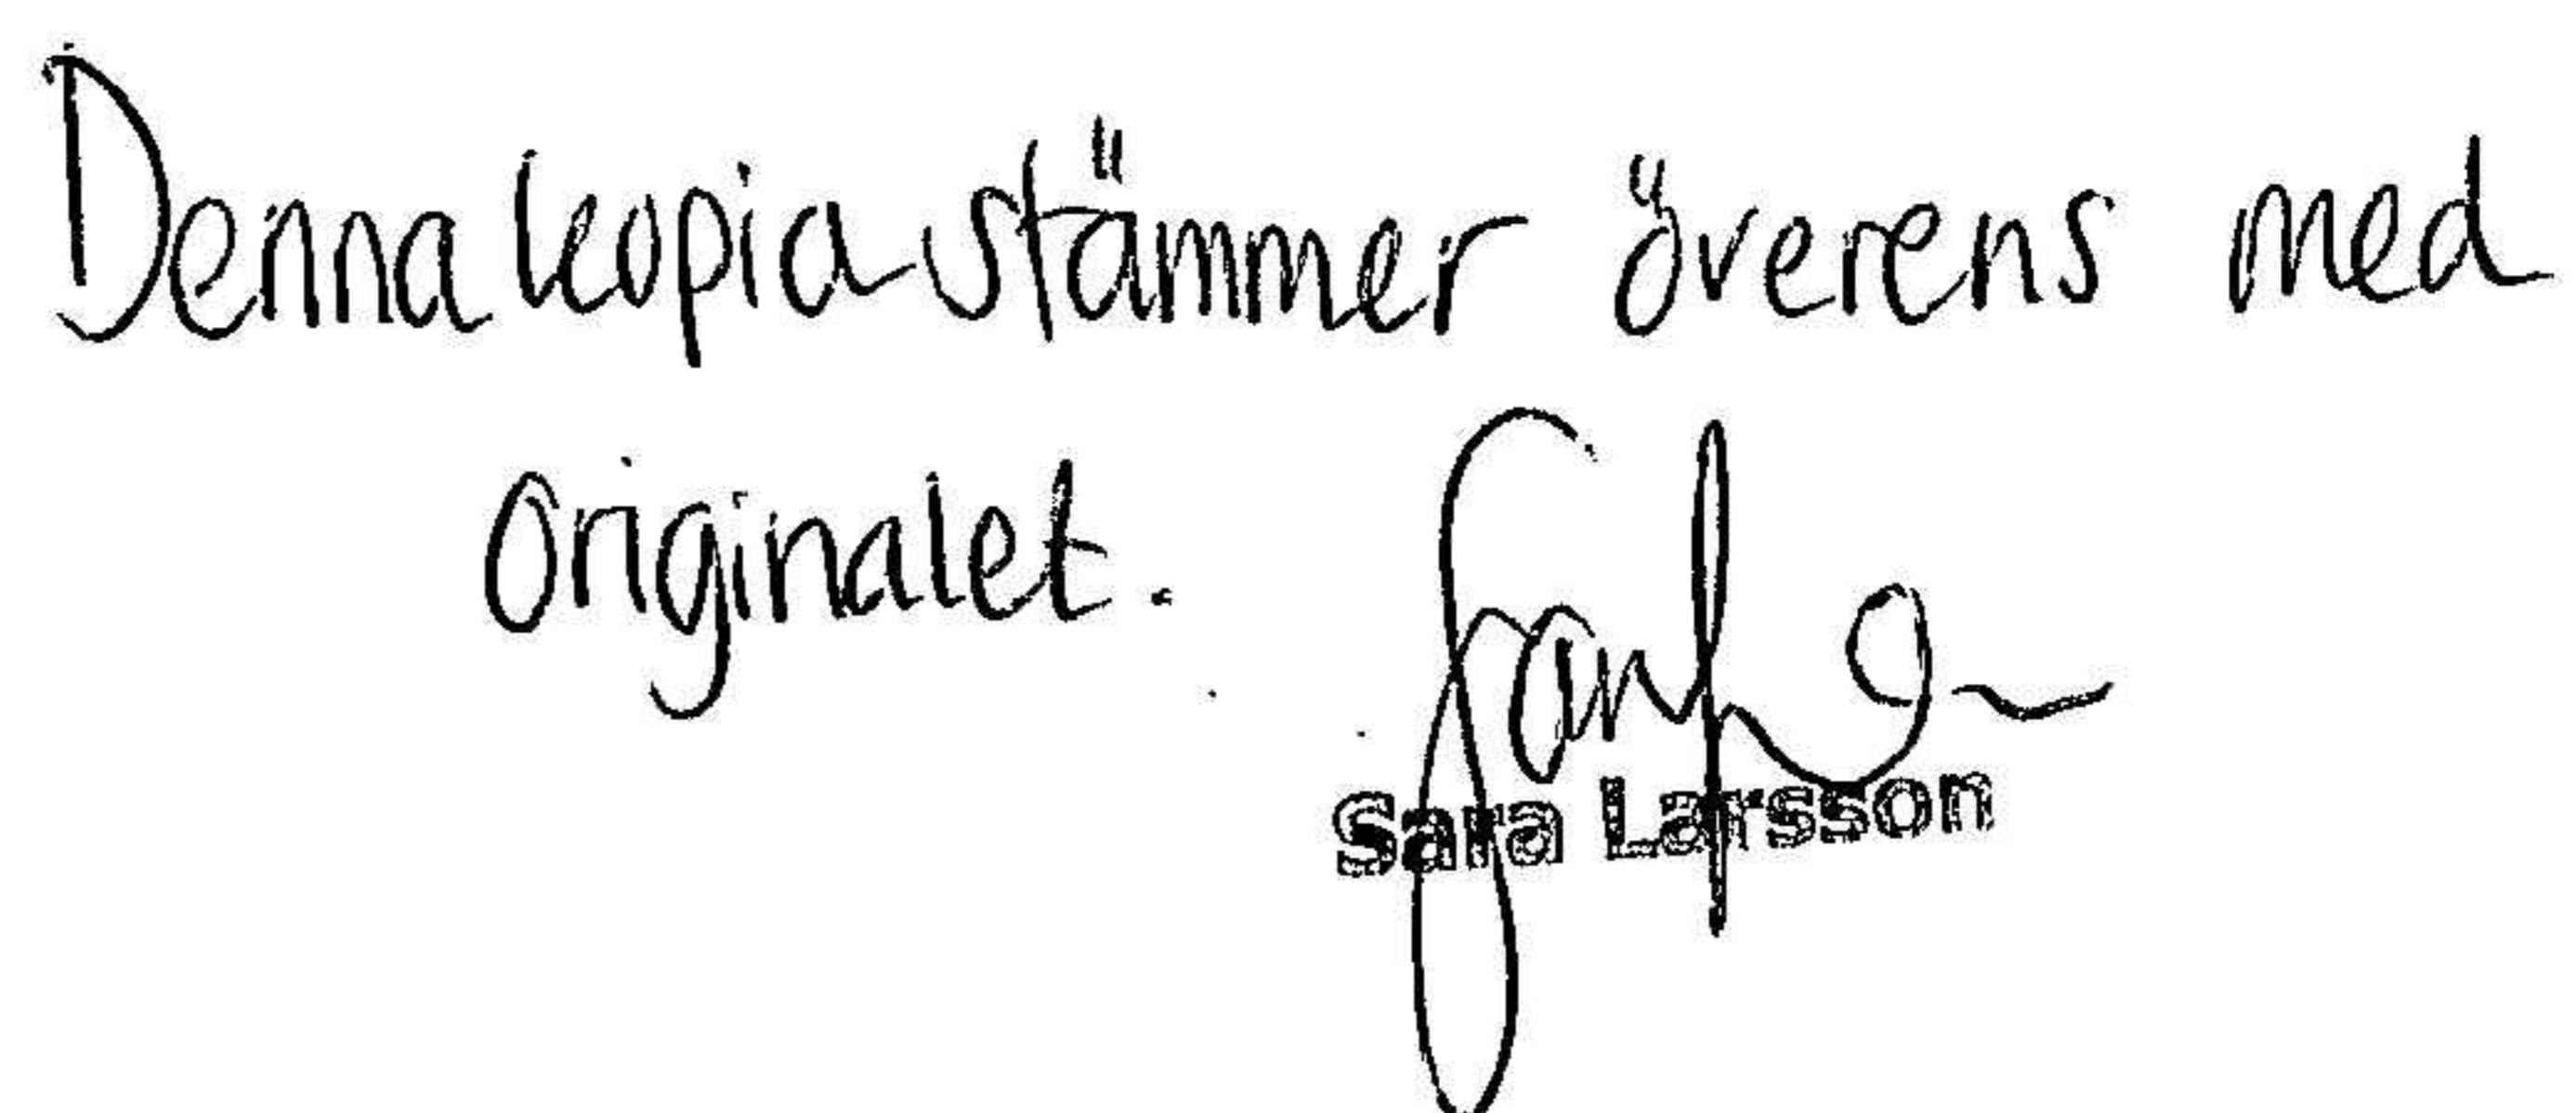 Denna kopia stämmer överens med
originalet.
Sara Larsson